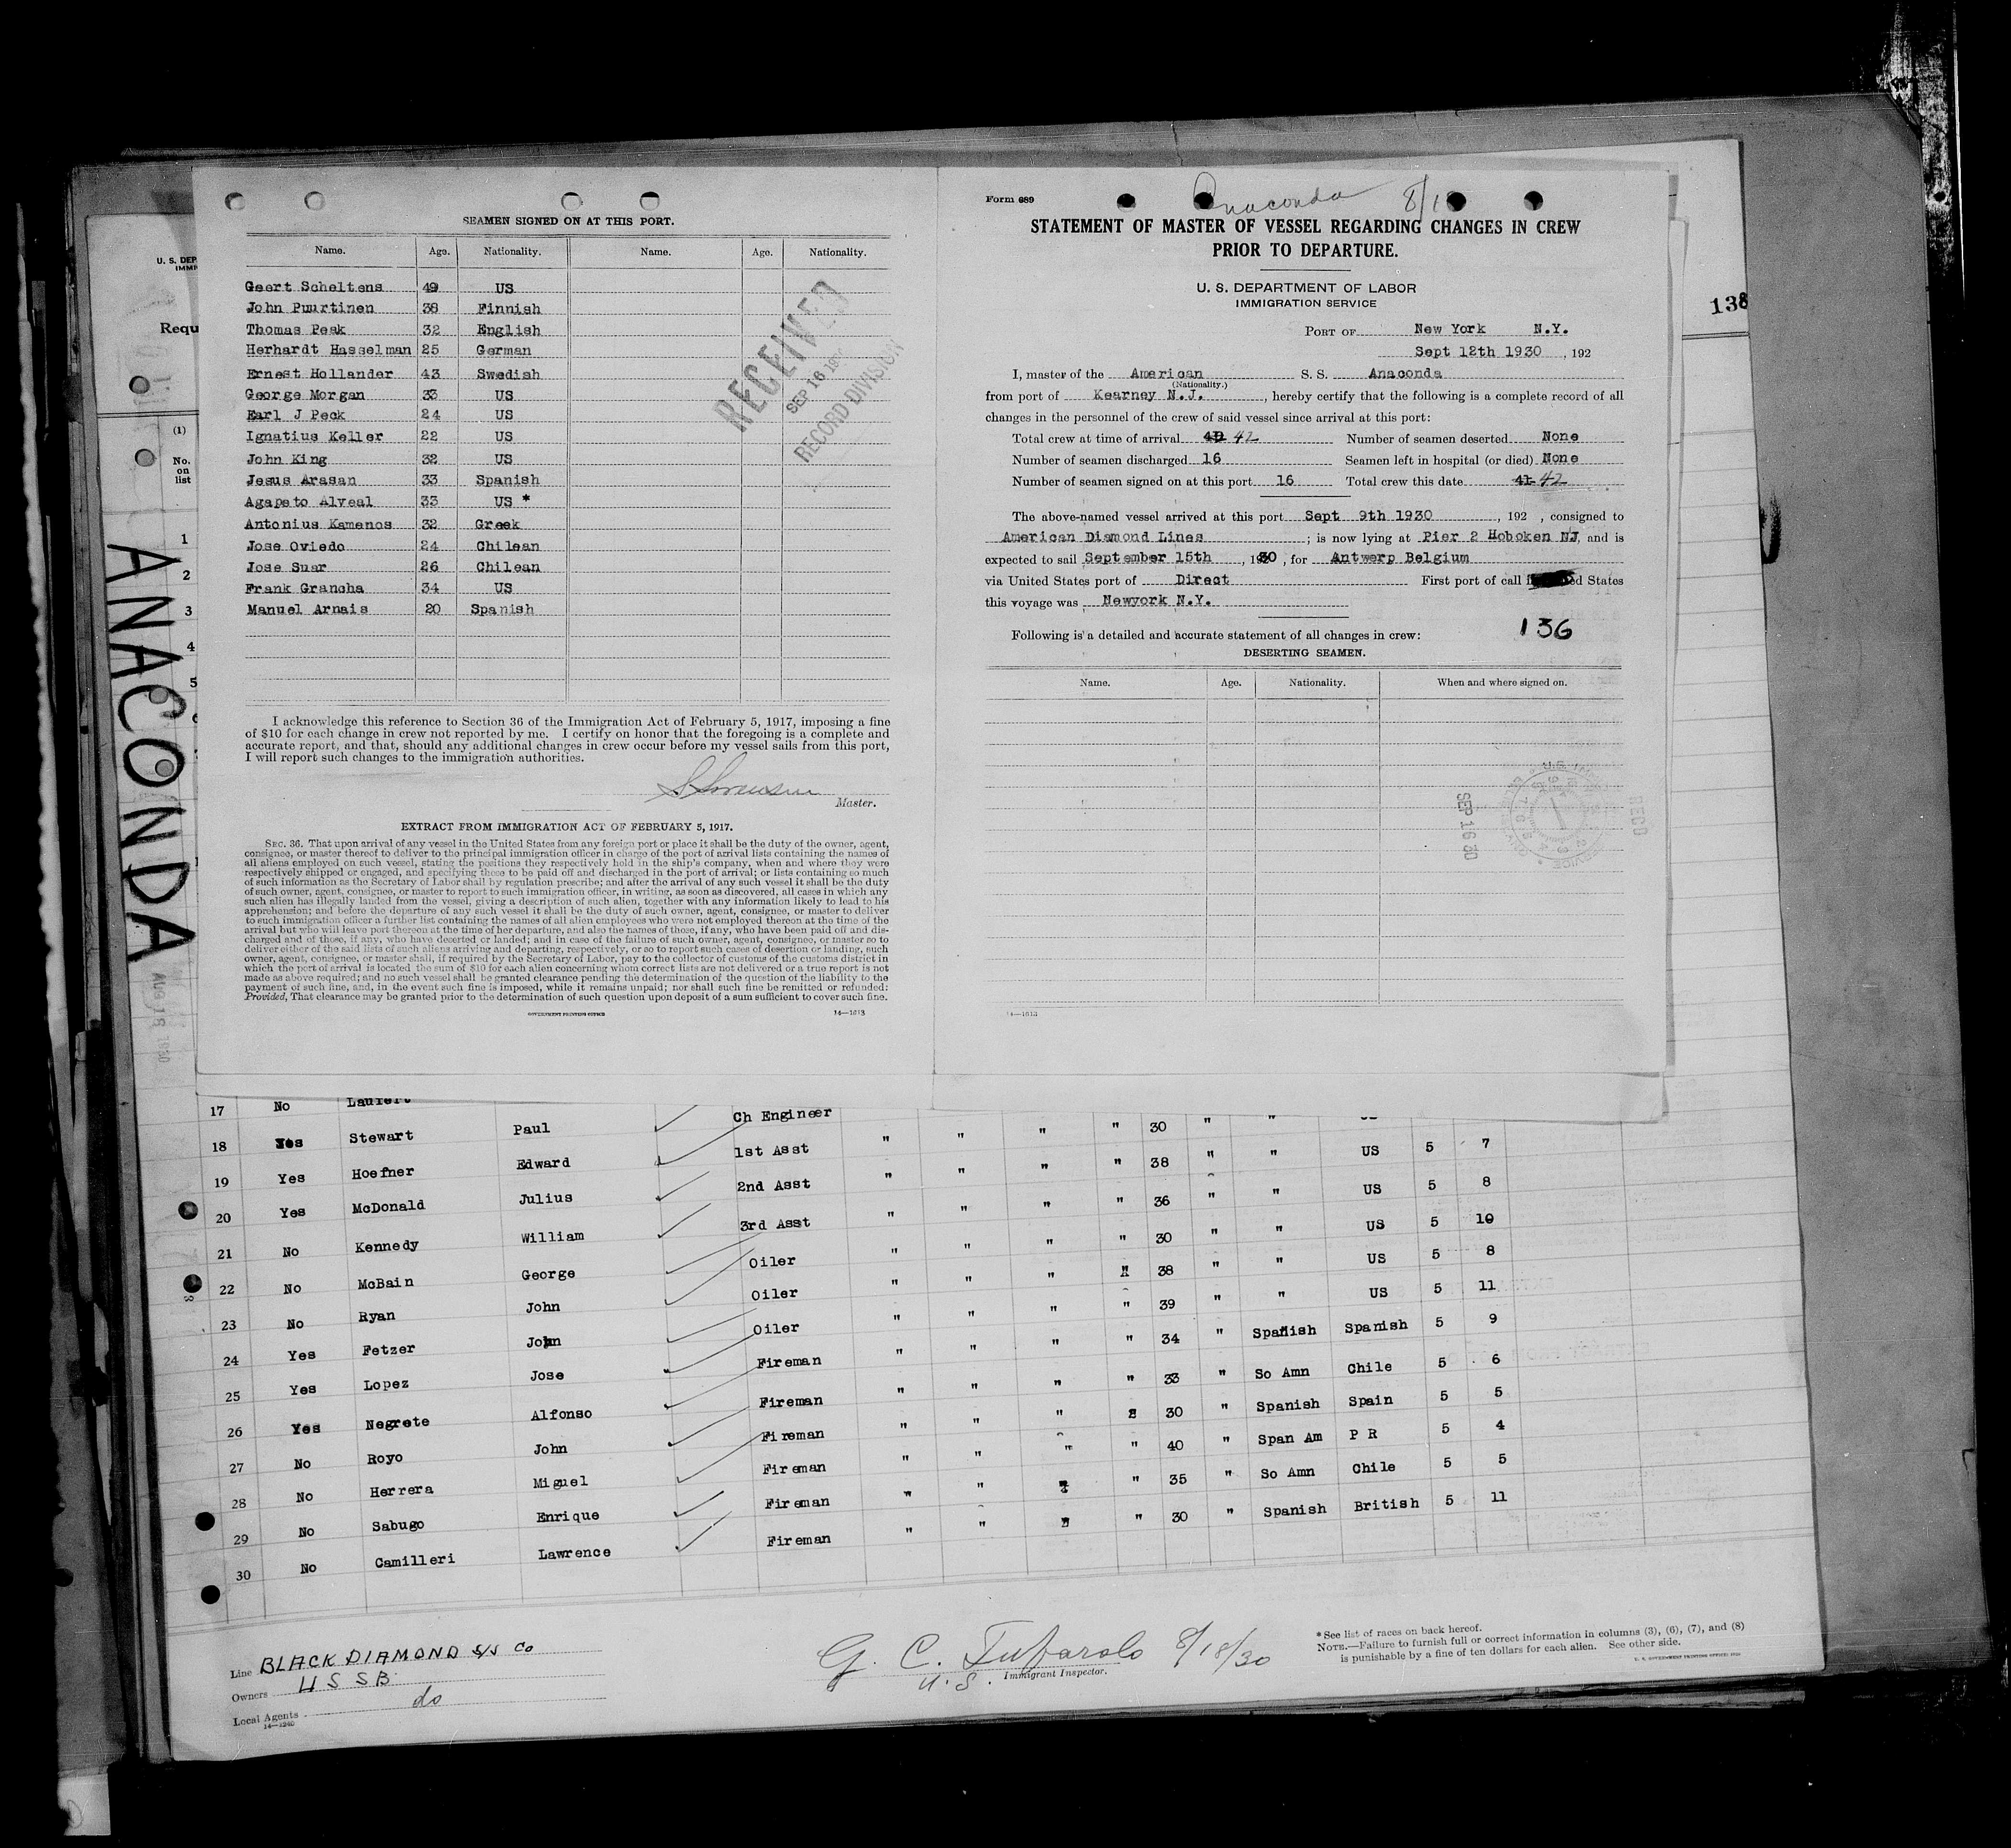 SEAMEN SIGNED ON AT THIS PORT.
Name. Age. Nationality. Name. Age. Nationality.
Geert Scheltens 49 US
John Puurtinen 38 Finnish
Thomas Peak 32 English
Herhardt Hasselman 25 German
Ernest Hollander 43 Swedish
George Morgan 33 US
Earl J Peck 24 US
Ignatius Keller 22 US
John King 32 US
Jesus Arasan 33 Spanish
Agapato Alveal 33 US *
Antonius Kamenos 32 Greek
Jose Oviedo 24 Chilean
Jose Suar 26 Chilean
Frank Grancha 34 US
Manuel Arnais 20 Spanish
RECEIVED
SEP 16
RECORD DIVISION
I acknowledge this reference to Section 36 of the Immigration Act of February 5, 1917, imposing a fine
of $10 for each change in crew not reported by me. I certify on honor that the foregoing is a complete and
accurate report, and that, should any additional changes in crew occur before my vessel sails from this port,
I will report such changes to the immigration authorities.
S Sorensen
Master.
EXTRACT FROM IMMIGRATION ACT OF FEBRUARY 5, 1917.
SEC. 36. That upon arrival of any vessel in the United States from any foreign port or place it shall be the duty of the owner, agent,
consignee, or master thereof to deliver to the principal immigration officer in charge of the port of arrival lists containing the names of
all aliens employed on such vessel, stating the positions they respectively hold in the ship's company, when and where they were
respectively shipped or engaged, and specifying those to be paid off and discharged in the port of arrival; or lists containing so much
of such information as the Secretary of Labor shall by regulation prescribe; and after the arrival of any such vessel it shall be the duty
of such owner, agent, consignee, or master to report to such immigration officer, in writing, as soon as discovered, all cases in which any
such alien has illegally landed from the vessel, giving a description of such alien, together with any information likely to lead to his
apprehension; and before the departure of any such vessel it shall be the duty of such owner, agent, consignee, or master to deliver
to such immigration officer a further list containing the names of all alien employees who were not employed thereon at the time of the
arrival but who will leave port thereon at the time of her departure, and also the names of those, if any, who have been paid off and dis-
charged and of those, if any, who have deserted or landed; and in case of the failure of such owner, agent, consignee, or master so to
deliver either of the said lists of such aliens arriving and departing, respectively, or so to report such cases of desertion or landing, such
owner, agent, consignee, or master shall, if required by the Secretary of Labor, pay to the collector of customs of the customs district in
which the port of arrival is located the sum of $10 for each alien concerning whom correct lists are not delivered or a true report is not
made as above required; and no such vessel shall be granted clearance pending the determination of the question of the liability to the
payment of such fine, and, in the event such fine is imposed, while it remains unpaid; nor shall such fine be remitted or refunded:
Provided, That clearance may be granted prior to the determination of such question upon deposit of a sum sufficient to cover such fine.
GOVERNMENT PRINTING OFFICE 14—1613
Form 689
Anaconda 8/1
STATEMENT OF MASTER OF VESSEL REGARDING CHANGES IN CREW
PRIOR TO DEPARTURE.
U. S. DEPARTMENT OF LABOR
IMMIGRATION SERVICE
PORT OF New York N.Y.
Sept 12th 1930 , 192
I, master of the American S. S. Anaconda
(Nationality.)
from port of Kearney N.J. , hereby certify that the following is a complete record of all
changes in the personnel of the crew of said vessel since arrival at this port:
Total crew at time of arrival 42 Number of seamen deserted None
Number of seamen discharged 16 Seamen left in hospital (or died) None
Number of seamen signed on at this port 16 Total crew this date 41 42
The above-named vessel arrived at this port Sept 9th 1930 , 192 , consigned to
American Diamond Lines ; is now lying at Pier 2 Hoboken NJ, and is
expected to sail September 15th , 1930 , for Antwerp Belgium
via United States port of Direct First port of call ed States
this voyage was Newyork N.Y.
Following is a detailed and accurate statement of all changes in crew:
136
DESERTING SEAMEN.
Name. Age. Nationality. When and where signed on.
SEP 16 30
RECD
14—1613
138
U. S. DEP
IMMI
Requ
(1)
No.
on
list
1
2
3
4
5
ANACONDA
17 No Laurert Ch Engineer
18 Yes Stewart Paul 1st Asst " " " " 30 " " US 5 7
19 Yes Hoefner Edward 2nd Asst " " " " 38 " " US 5 8
20 Yes McDonald Julius 3rd Asst " " " " 36 " " US 5 10
21 No Kennedy William Oiler " " " " 30 " " US 5 8
22 No McBain George Oiler " " " " 38 " " US 5 11
23 No Ryan John Oiler " " " " 39 " Spanish Spanish 5 9
24 Yes Fetzer John Fireman " " " " 34 " So Amn Chile 5 6
25 Yes Lopez Jose Fireman " " " " 33 " Spanish Spain 5 5
26 Yes Negrete Alfonso Fireman " " " " 30 " Span Am P R 5 4
27 No Royo John Fireman " " " " 40 " So Amn Chile 5 5
28 No Herrera Miguel Fireman " " " " 35 " Spanish British 5 11
29 No Sabugo Enrique Fireman " " " " 30 "
30 No Camilleri Lawrence
Line BLACK DIAMOND S/S Co
Owners U S S B
Local Agents do
14—1240
G. C. Tufarolo 8/18/30
U. S. Immigrant Inspector.
* See list of races on back hereof.
NOTE.—Failure to furnish full or correct information in columns (3), (6), (7), and (8)
is punishable by a fine of ten dollars for each alien. See other side.